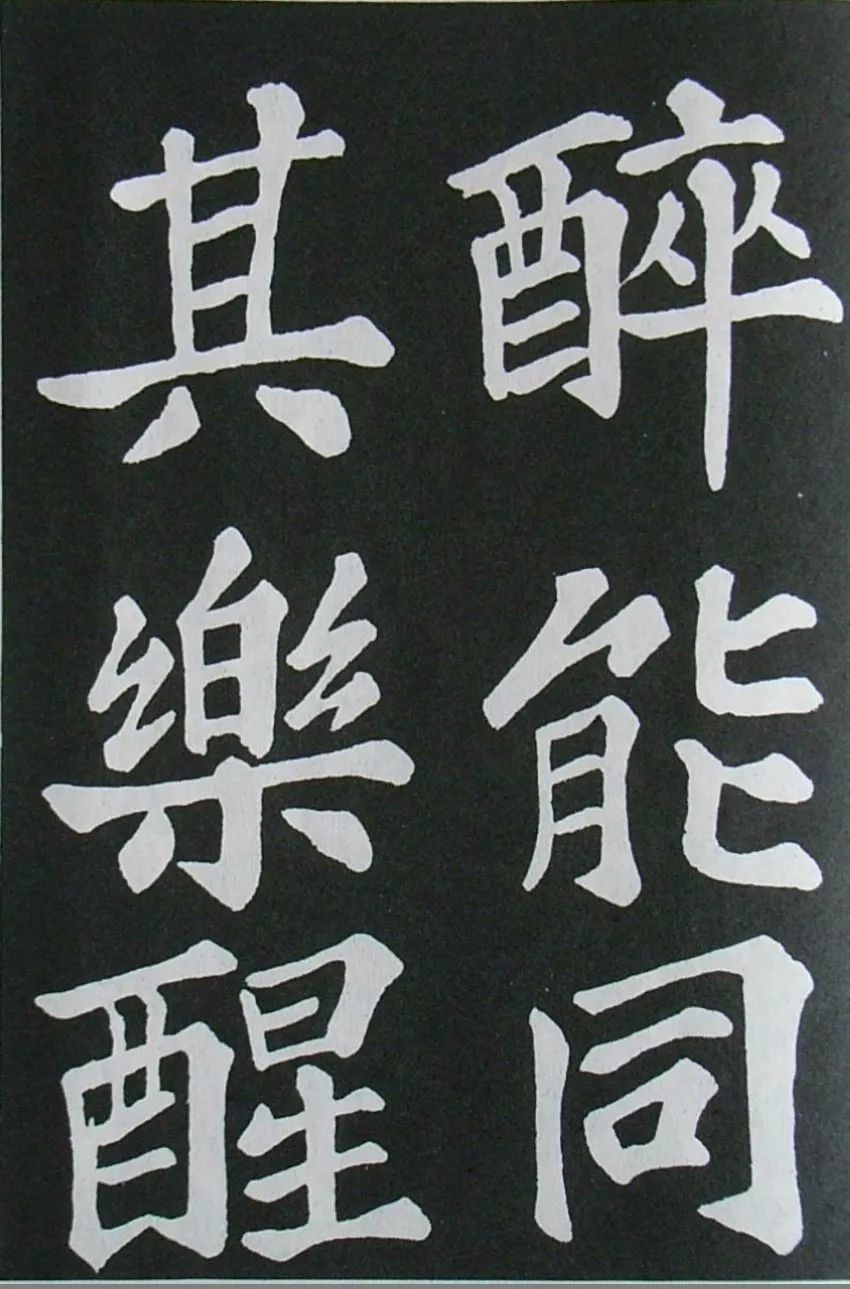 醉能同
其樂醒